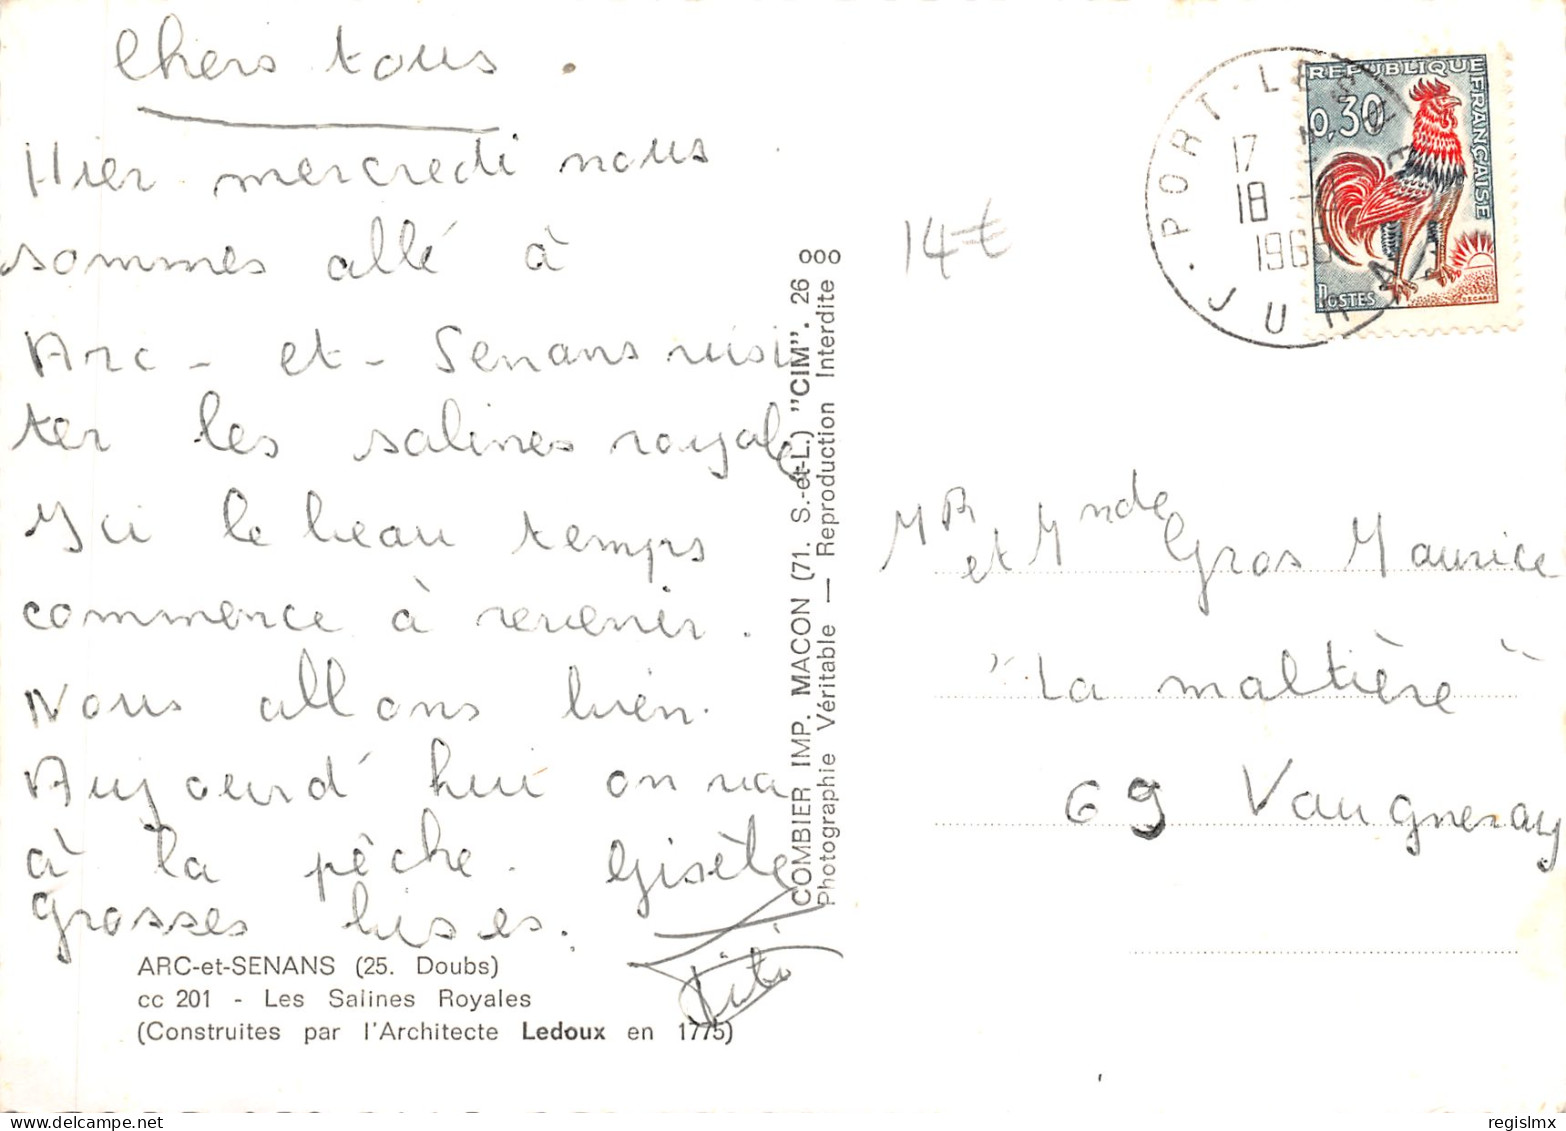 Chers tous.
Hier mercredi nous
sommes allé à
Arc-et-Senans visi
ter les salines royale
Ici le beau temps
commence à revenir.
Nous allons bien.
Aujourd'hui on va
à la pêche. Gisèle
grosses bises.
Titi
ARC-et-SENANS (25. Doubs)
cc 201 - Les Salines Royales
(Construites par l'Architecte Ledoux en 1775)
COMBIER IMP. MACON (71. S.-et-L.) "CIM". 26 000
Photographie Véritable — Reproduction Interdite
14€
PORT-LE
JURA
17
18
196
REPUBLIQUE FRANÇAISE
0,30
POSTES
DECARIS
MR et Mde Gros Maurice
"La maltière"
69 Vaugneray
regislmx